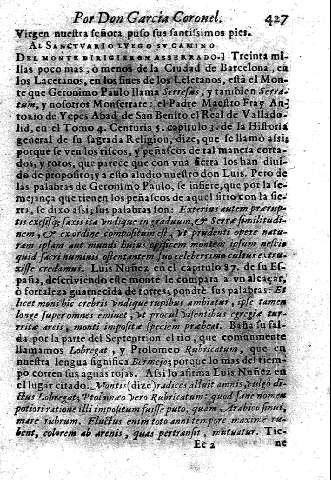 Por Don Garcia Coronel. 427
Virgen nuestra señora puso sus santissimos pies.
AL SANCTVARIO LVEGO SV CAMINO
DEL MONTE DIRIGIERON ASSERRADO.] Treinta mi-
llas poco mas, ò menos de la Ciudad de Barcelona, en
los Lacetanos, en los fines de los Leletanos, està el Mon-
te que Geronimo Paulo llama Serresus, y tambien Serra-
tum, y nosotros Monserrate: el Padre Maestro Fray An-
tonio de Yepes Abad de San Benito el Real de Vallado-
lid, en el Tomo 4. Centuria 5. capitulo 3. de la Historia
general de su sagrada Religion, dize, que se llamò assi,
porque se ven los riscos, y peñascos de tal manera corta-
dos, y rotos, que parece que con vna sierra los han diui-
do de proposito; y a esto aludio nuestro don Luis. Pero de
las palabras de Geronimo Paulo, se infiere, que por la se-
mejança que tienen los peñascos de aquel sitio con la sier-
ra, se dixo assi; sus palabras son: Exertus autem prærup-
tis excissisq; saxis ita vndique in graduum, & Serræ similitudi-
nem, & exordine compositum est, vt prudenti opere natu-
ram ipsam aut mundi huius opificem montem ipsum nescio
quid sacri numinis ostentantem suo celeberrimo cultu extru-
xisse credamus. Luis Nuñez en el capitulo 87. de su Es-
paña, descriuiendo este monte le compara a vn alcaçar,
ò fortaleza guarnecida de torres, pondrè sus palabras: Et
licet mons hic crebris vndique rupibus ambiatur, ipse tamen
longe superomnes eminet, vt procul videntibus egregiæ tur-
ritæ arcis, monti impositæ speciem præbeat. Baña su fal-
da por la parte del Septentrion el rio, que comunmente
llamamos Lobregat, y Ptolomeo Rubricatum, que en
nuestra lengua significa Bermejo; porque lo mas de tiem-
po corren sus aguas rojas. Assi lo afirma Luis Nuñez en
el lugar citado. Montis (dize) radices alluit amnis, vulgo di-
ctus Lobregat, Ptolomæo vero Rubricatum: quod sane nomen
potiori ratione illi impositum fuisse puto, quam Arabico sinui,
mare rubrum. Fluctus enim toto anni tempore maxime ru-
bent, colorem ab arenis, quas pertransit, mutuatur. Tie-
Ee 2 ne